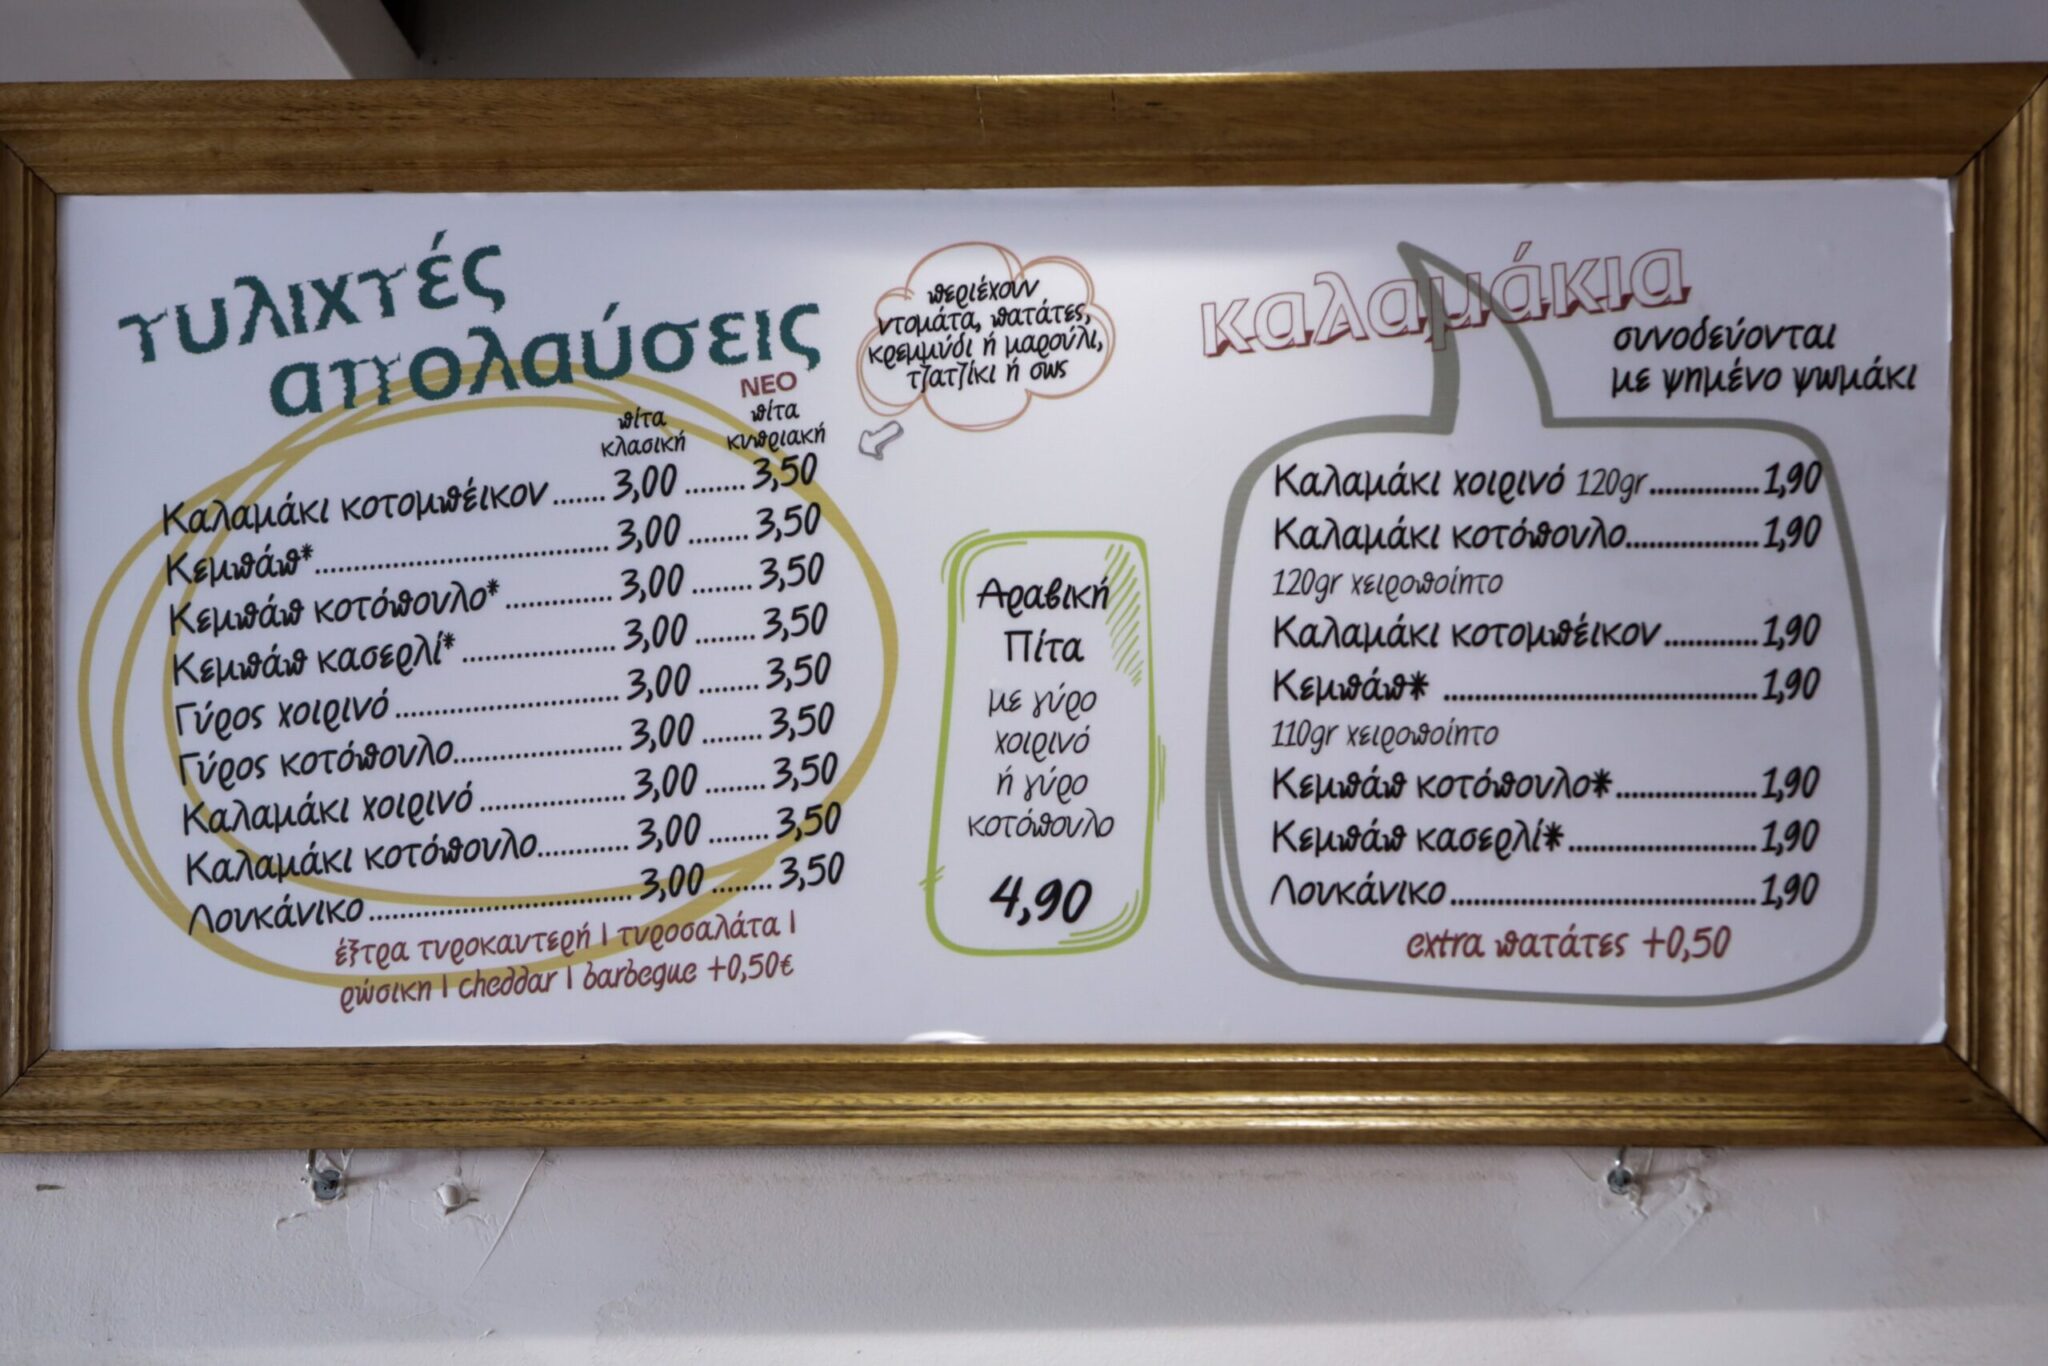 τυλιχτές
απολαύσεις
ΝΕΟ
πίτα κλασική
πίτα κυπριακή
Καλαμάκι κοτομπέικον....... 3,00 ........ 3,50
Κεμπάπ*........ 3,00 ........ 3,50
Κεμπάπ κοτόπουλο*........ 3,00 ........ 3,50
Κεμπάπ κασερλί*........ 3,00 ........ 3,50
Γύρος χοιρινό........ 3,00 ........ 3,50
Γύρος κοτόπουλο........ 3,00 ........ 3,50
Καλαμάκι χοιρινό........ 3,00 ........ 3,50
Καλαμάκι κοτόπουλο........ 3,00 ........ 3,50
Λουκάνικο........ 3,00 ........ 3,50
έξτρα τυροκαυτερή | τυροσαλάτα |
ρώσικη | cheddar | barbegue +0,50€
περιέχουν
ντομάτα, πατάτες,
κρεμμύδι ή μαρούλι,
τζατζίκι ή σως
Αραβική
Πίτα
με γύρο
χοιρινό
ή γύρο
κοτόπουλο
4,90
καλαμάκια
συνοδεύονται
με ψημένο ψωμάκι
Καλαμάκι χοιρινό 120gr........ 1,90
Καλαμάκι κοτόπουλο........ 1,90
120gr χειροποίητο
Καλαμάκι κοτομπέικον........ 1,90
Κεμπάπ*........ 1,90
110gr χειροποίητο
Κεμπάπ κοτόπουλο*........ 1,90
Κεμπάπ κασερλί*........ 1,90
Λουκάνικο........ 1,90
extra πατάτες +0,50